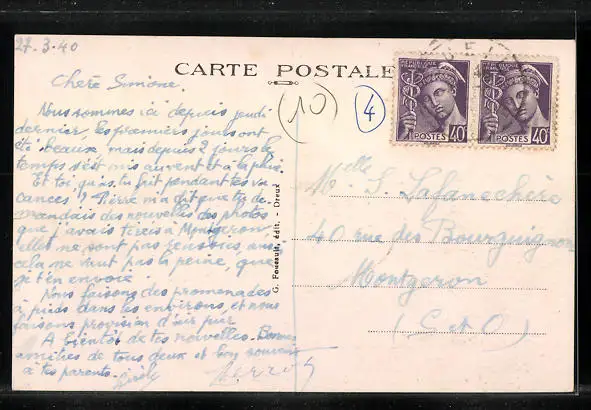 27-3-40
CARTE POSTALE
Chère Simone.
(10)
(4)
Nous sommes ici depuis jeudi
dernier, les premiers jours ont
été beaux mais depuis 2 jours le
temps s'est mis au vent et à la pluie
Et toi, qu'as tu fait pendant tes va
cances? Pierre m'a dit que tu de-
mandais des nouvelles des photos
que j'avais tirées à Montgeron,
elles ne sont pas
cela ne vaut pas la peine, que
je t'en envoie.
Nous faisons des promenades
à pieds dans les environs, et nous
faisons provision d'air pur
A bientôt de tes nouvelles. Bonnes
amitiés de tous deux et bon souvenir
à tes parents. Gisèle
G. Foucault, édit. - Dreux
REPUBLIQUE FRANÇAISE
POSTES 40c
REPUBLIQUE FRANÇAISE
POSTES 40c
Melle S. Lafanechère
40 rue des Bourguignons
Montgeron
(S et O)